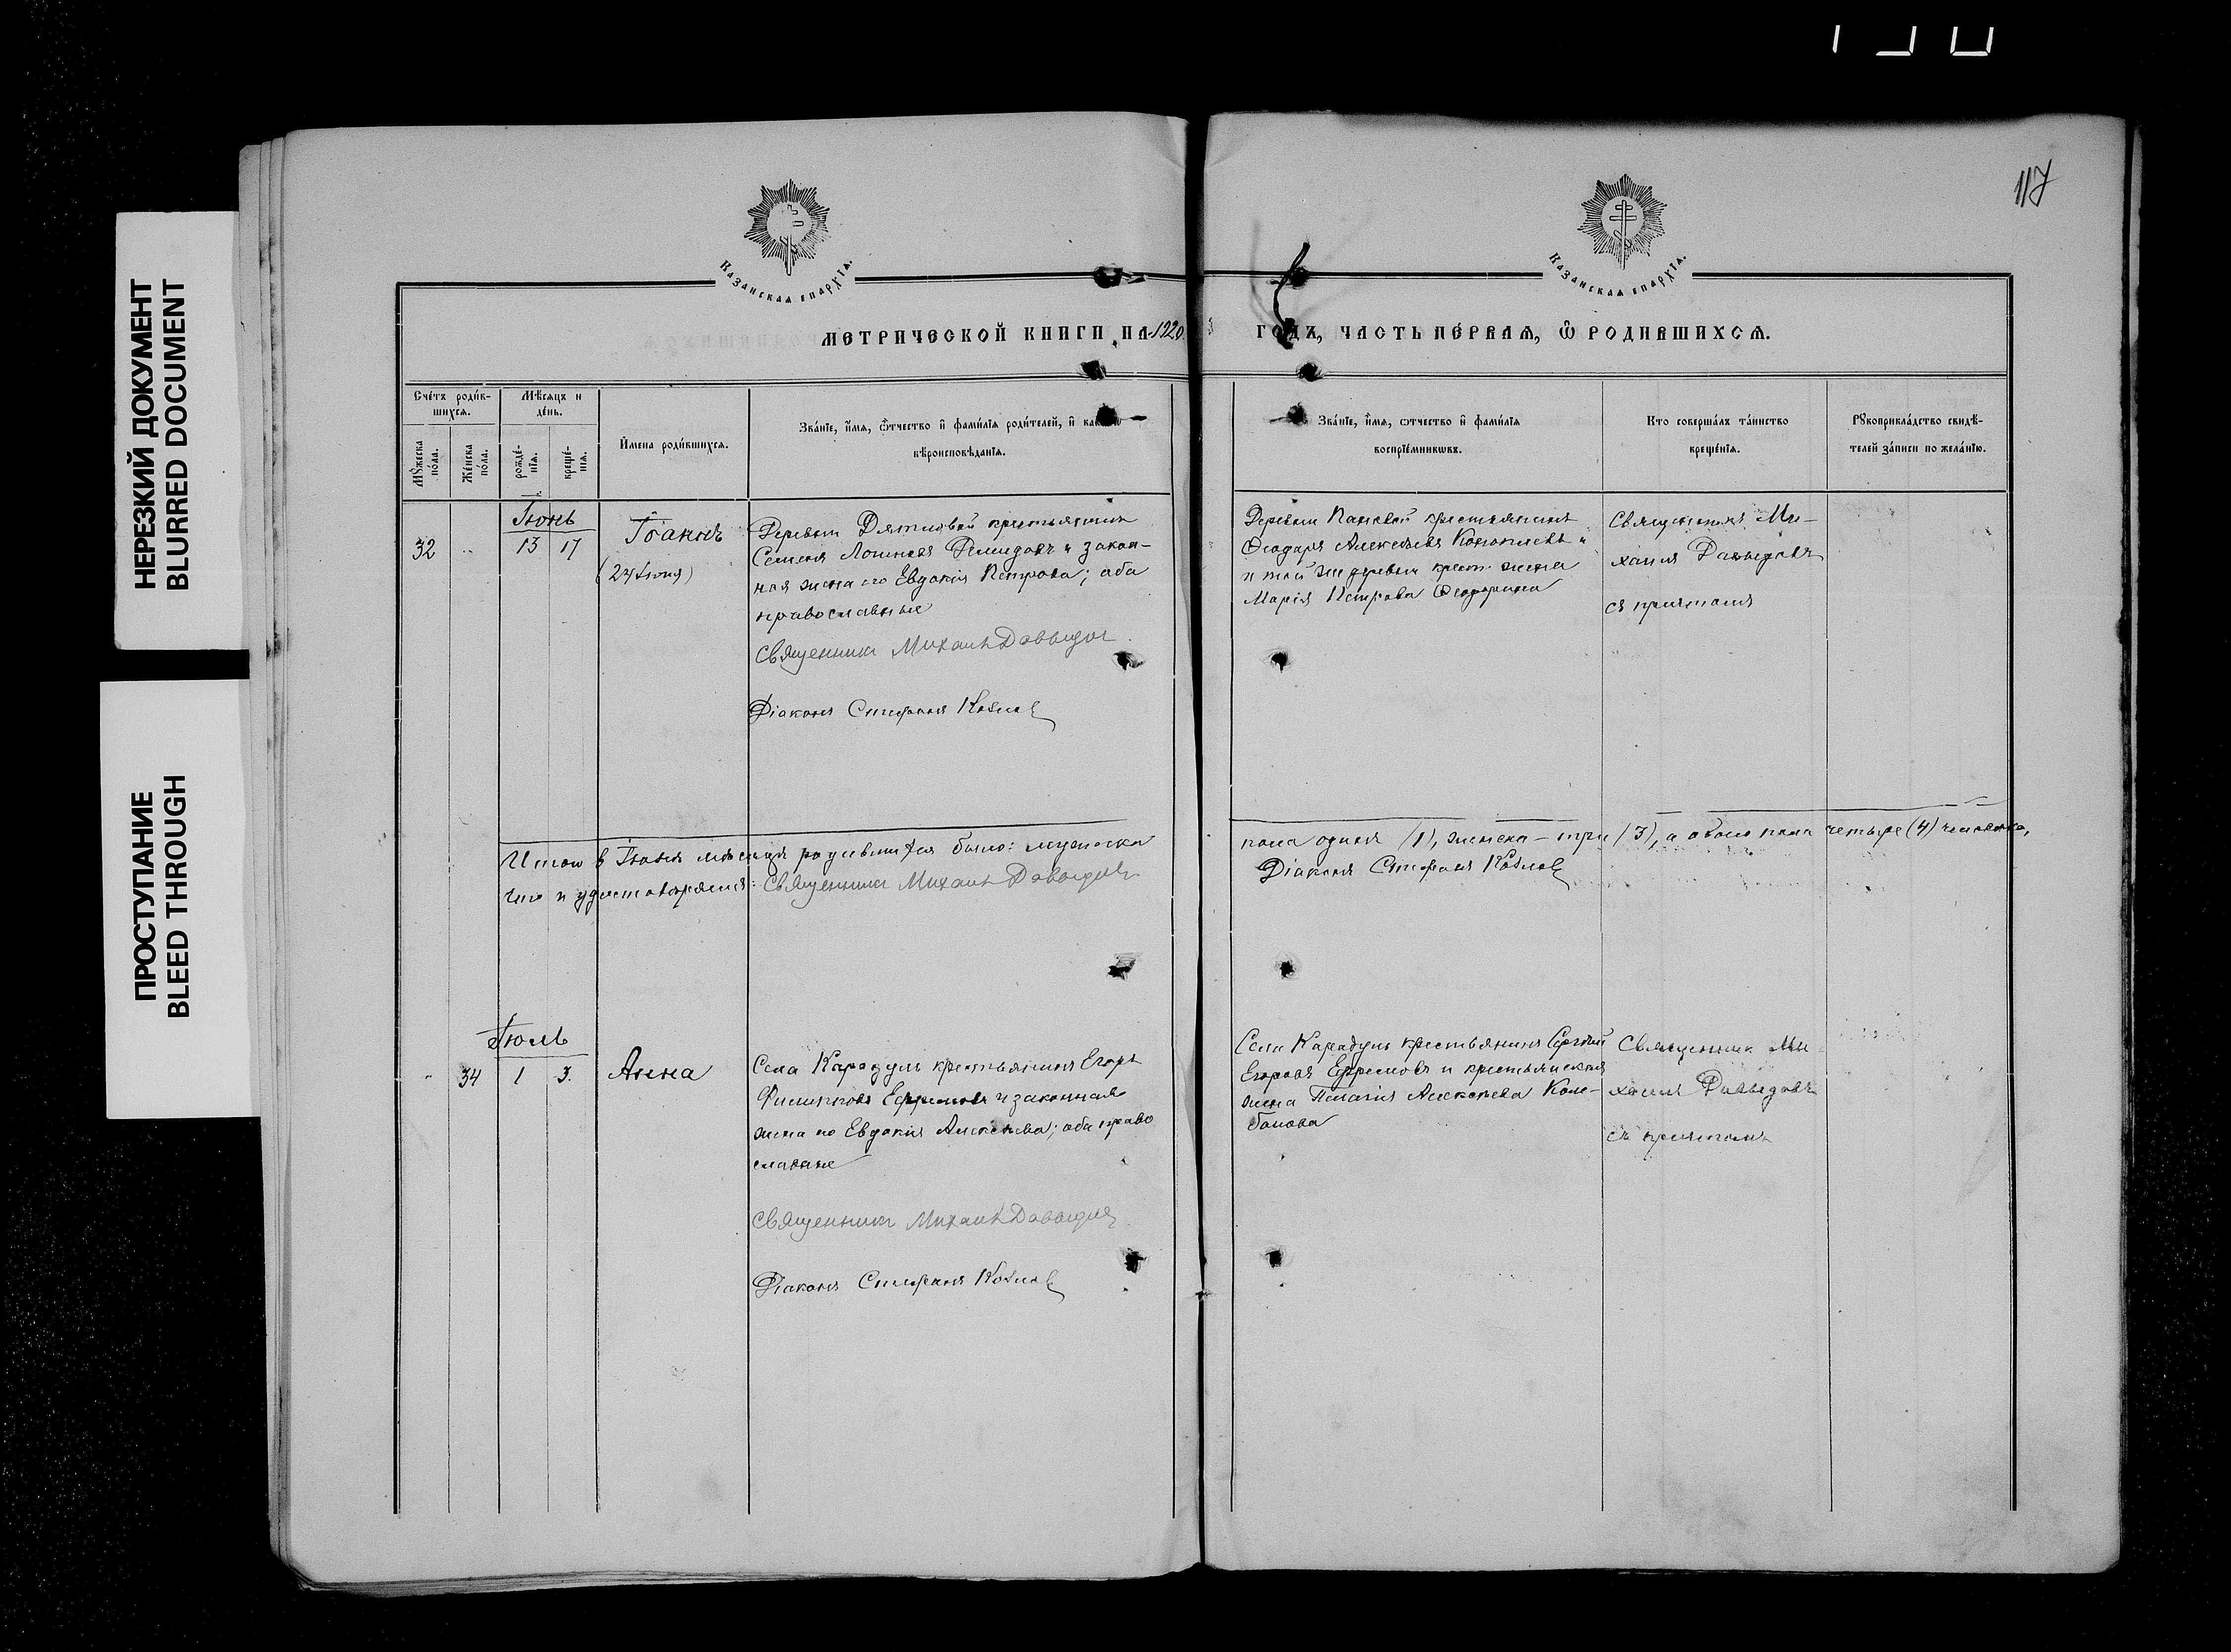 117
НЕРЕЗКИЙ ДОКУМЕНТ
BLURRED DOCUMENT
ПРОСТУПАНИЕ
BLEED THROUGH
Казанская епархїа.
Казанская епархїа.
МЕТРИЧЕСКОЙ КНИГИ НА 1920
ГОДЪ, ЧАСТЬ ПЕ́РВАЯ, Ѽ РОДИВШИХСЯ.
Сче́тъ роди́в-
шихся.
Мꙋ́жеска по́ла.
Же́нска по́ла.
Мѣ́сяцъ и
де́нь.
рожде́-
нїя.
креще́-
нїя.
И҆мена роди́вшихся.
Зва́нїе, и҆́мя, ѻ҆́тчество и҆ фами́лїя роди́телей, и҆
вѣроисповѣ́данїя.
Зва́нїе, и҆́мя, ѻтчество и҆ фами́лїя
воспрїе́мникѡвъ.
Кто соверша́лъ та́инство
креще́нїя.
Рꙋкоприкла́дство свидѣ́-
телей за́писи по жела́нїю.
Іюнь
32
13 17
Іоаннъ
(24 Іюня)
Деревни крестьянинъ
Семенъ Демидовъ и закон-
ная жена его Евдокія Петрова; оба
православные
Священникъ Михаилъ Давыдов
Діаконъ Стефанъ Козлов
Деревни Пановой крестьянинъ
Ѳеодоръ Алексѣевъ
и той же деревни крест. жена
Марія Петрова
Священникъ Ми-
хаилъ Давыдовъ
съ причтомъ
Итого в Іюнѣ мѣсяцѣ родившихся было: мужеска
пола одинъ (1), женска - три (3), а обоего пола четыре (4) человека,
что и удостовѣряемъ: Священникъ Михаилъ Давыдовъ
Діаконъ Стефанъ Козлов
Іюль
34
1 3.
Анна
Села Карадули крестьянинъ Егоръ
Филипповъ Ефремовъ и законная
жена его Евдокія Алексѣева; оба право
славные
Священникъ Михаилъ Давыдов
Діаконъ Стефанъ Козлов
Села Карадули крестьянинъ Сергѣй
Егоровъ Ефремовъ и крестьянская
жена Пелагія Алексѣева Коле-
банова
Священник Ми
хаилъ Давыдовъ
съ причтомъ